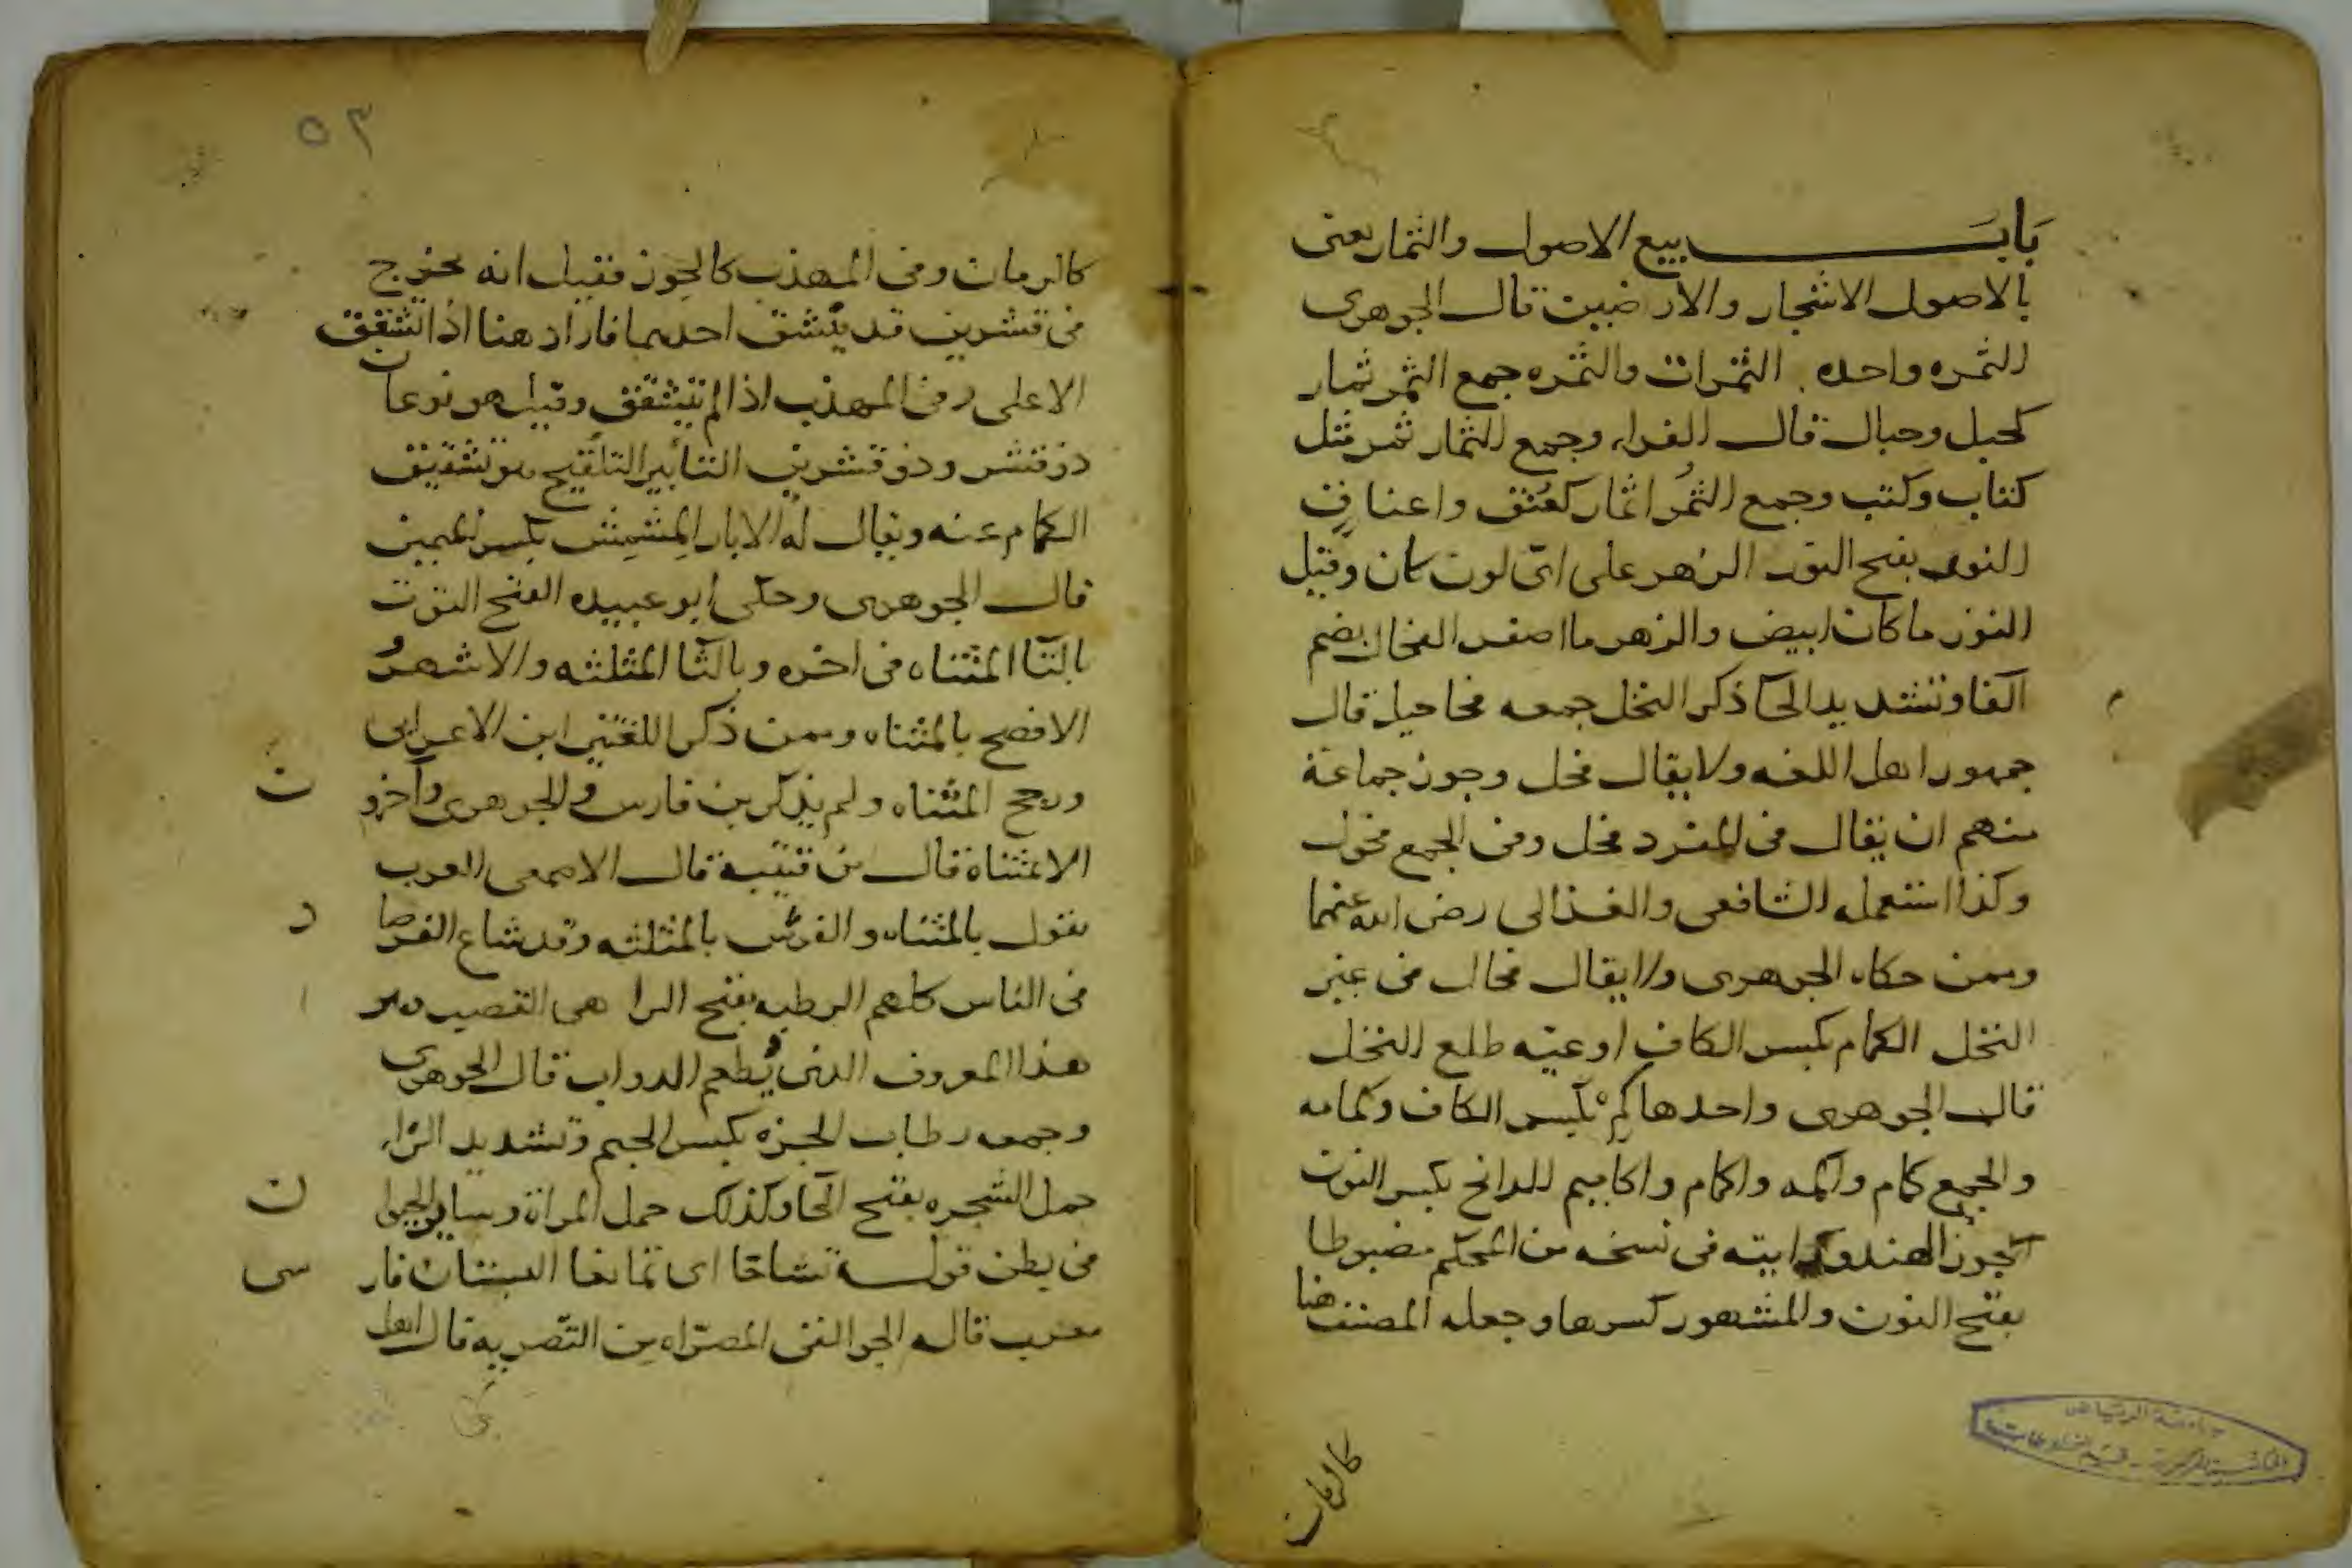 باب بيع الاصول والثمار يعنى
بالاصول الاشجار والارضين قال الجوهرى
الثمره واحده الثمرات والثمره جمع الثمر ثمار
كجبل وجبال قال الفراء وجمع الثمار ثمر مثل
كتاب وكتب وجمع الثمُر اثمار كعُنُق واعناق
النور بفتح النون الزهر على اىّ لون كان وقيل
النور ما كان ابيض والزهر ما اصفر الفحال بضم
الفا وتشديد الحآ ذكر النخل جمعه فحاحيل قال
جمهور اهل اللغه ولا يقال فحل وجوز جماعة
منهم ان يقال فى المفرد فحل وفى الجمع فحول
وكذا استعمله الشافعى والغزالى رضى الله عنهما
وممن حكاه الجوهرى ولا يقال فحال فى غير
النخل الكمام بكسر الكاف اوعيه طلع النخل
قال الجوهرى واحدها كِمْ بكسر الكاف وكمامه
والجمع كمام واكمه واكمام واكاميم الرانج بكسر النون
الجوز الهندى ورايته فى نسخه من المحكم مضبوطا
بفتح النون والمشهور كسرها وجعله المصنف هنا
كالرمان
جامعة الرياض
المكتبة المركزية - قسم المخطوطات
٥٣
كالرمان وفى المهذب كالجوز فقيل انه يخرج
فى قشرين قد ينشق احدهما فاراد هنا اذا تشقق
الاعلى وفى المهذب اذا لم يتشقق وقيل هو نوعان
ذو قشر وذو قشرين التأبير التلقيح هو تشقيق
الكمام عنه ويقال له الابار المِشمِش بكسر الميمين
قال الجوهرى وحكى ابو عبيده الفتح التوت
بالتآ المثناه فى اخره وبالثآ المثلثه والاشهر
الافصح بالمثناه وممن ذكر اللغتين ابن الاعرابى
ورجح المثناه ولم يذكر بن فارس والجوهرى واخرون
الا المثناة قال بن قتيبة قال الاصمعى العرب
يقول بالمثناه والفرس بالمثلثه وقد شاع الفرصاد
فى الناس كلهم الرطبه بفتح الرا هى القصب
هذا المعروف الذى يُطعم الدواب قال الجوهرى
وجمعه رطاب الجزه بكسر الجيم وتشديد الزاء
حمل الشجره بفتح الحآ وكذلك حمل المراة وساير الحيوان
فى بطن قوله تشاحا اى تمانعا البستان فارسى
معرب قاله الجواليقى المصرّاه من التّصريه قال اهل